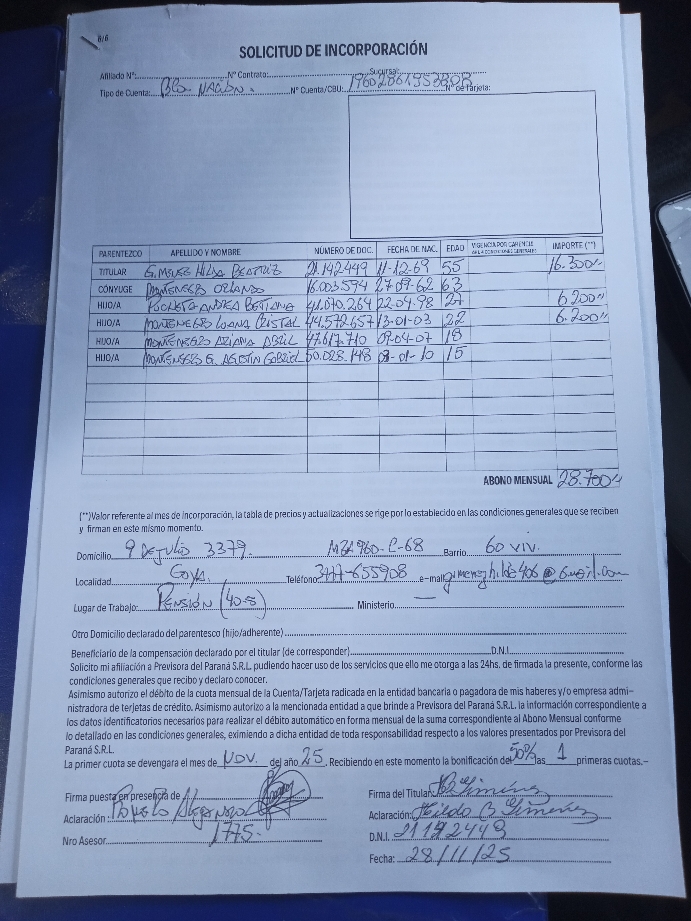 8/6
SOLICITUD DE INCORPORACIÓN
Afiliado N°: N° Contrato: Sucursal:
Tipo de Cuenta: Bco. NACIÓN. N° Cuenta/CBU: N° de Tarjeta:
PARENTEZCO APELLIDO Y NOMBRE NÚMERO DE DOC. FECHA DE NAC. EDAD VIGENCIA POR CARENCIA IMPORTE (**)
TITULAR HILDA BEATRIZ 11-12-69 55 16.300
CÓNYUGE MONTENEGRO ORLANDO 16.003.594 27-09-62 63
HIJO/A ANDREA BETIANA 41.070.264 22-04-98 27 6.200
HIJO/A MONTENEGRO LUANA CRISTAL 44.572.657 13-01-03 22 6.200
HIJO/A MONTENEGRO ARIANA ABRIL 47.617.710 09-04-07 18
HIJO/A MONTENEGRO G. AGUSTÍN GABRIEL 50.028.148 03-01-10 15
ABONO MENSUAL 28.700
(**)Valor referente al mes de incorporación, la tabla de precios y actualizaciones se rige por lo establecido en las condiciones generales que se reciben
y firman en este mismo momento.
Domicilio 9 DE JULIO 3379. MZA 960-C-68 Barrio 60 VIV.
Localidad GOYA. Teléfono 3777-655908 e-mail
Lugar de Trabajo: PENSIÓN Ministerio
Otro Domicilio declarado del parentesco (hijo/adherente)
Beneficiario de la compensación declarado por el titular (de corresponder) D.N.I.
Solicito mi afiliación a Previsora del Paraná S.R.L. pudiendo hacer uso de los servicios que ello me otorga a las 24hs. de firmada la presente, conforme las
condiciones generales que recibo y declaro conocer.
Asimismo autorizo el débito de la cuota mensual de la Cuenta/Tarjeta radicada en la entidad bancaria o pagadora de mis haberes y/o empresa admi-
nistradora de tarjetas de crédito. Asimismo autorizo a la mencionada entidad a que brinde a Previsora del Paraná S.R.L. la información correspondiente a
los datos identificatorios necesarios para realizar el débito automático en forma mensual de la suma correspondiente al Abono Mensual conforme
lo detallado en las condiciones generales, eximiendo a dicha entidad de toda responsabilidad respecto a los valores presentados por Previsora del
Paraná S.R.L.
La primer cuota se devengara el mes de NOV. del año 25. Recibiendo en este momento la bonificación del 50% las 1 primeras cuotas.-
Firma puesta en presencia de Firma del Titular:
Aclaración: Aclaración: Hilda B Gimenez
Nro Asesor 1775. D.N.I. 21192449
Fecha: 28/11/25